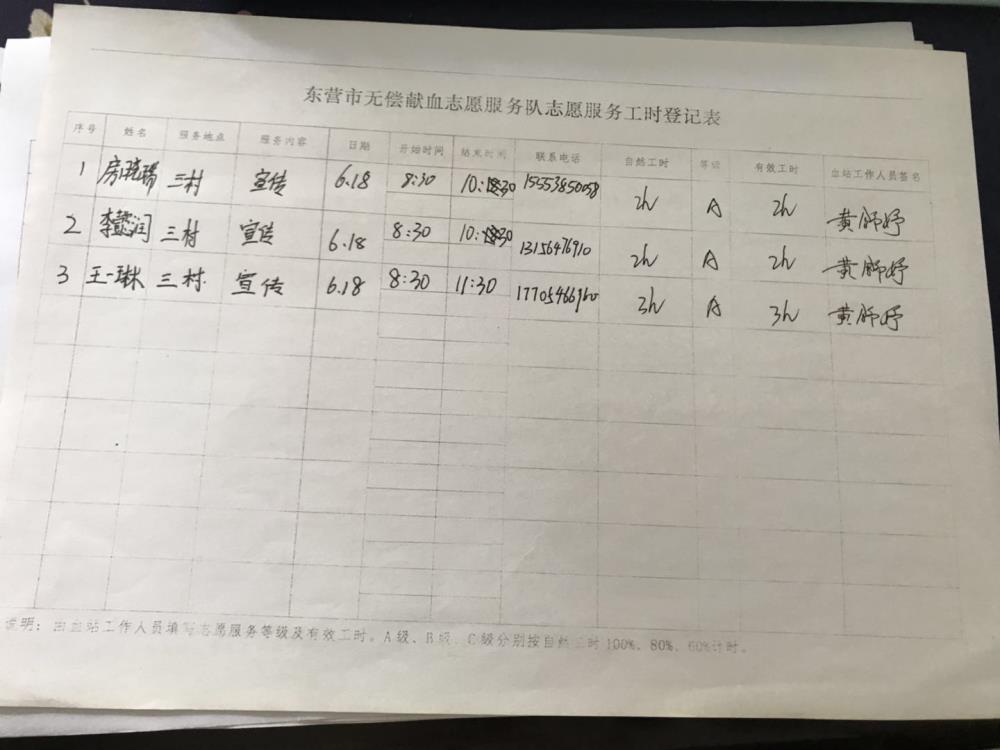 东营市无偿献血志愿服务队志愿服务工时登记表
序号 姓名 服务地点 服务内容 日期 开始时间 结束时间 联系电话 自然工时 等级 有效工时 血站工作人员签名
1 三村 宣传 6.18 8:30 10:30 15553850058 2h A 2h
2 李懿润 三村 宣传 6.18 8:30 10:30 13156476910 2h A 2h
3 王一琳 三村 宣传 6.18 8:30 11:30 17705466960 3h A 3h
说明：由血站工作人员填写志愿服务等级及有效工时。A级、B级、C级分别按自然工时100%、80%、60%计时。